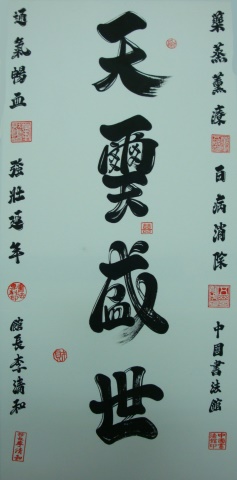 藥蒸薰療 百病消除 中國書法館
天璽盛世
通氣暢血 強壯延年 館長李清和